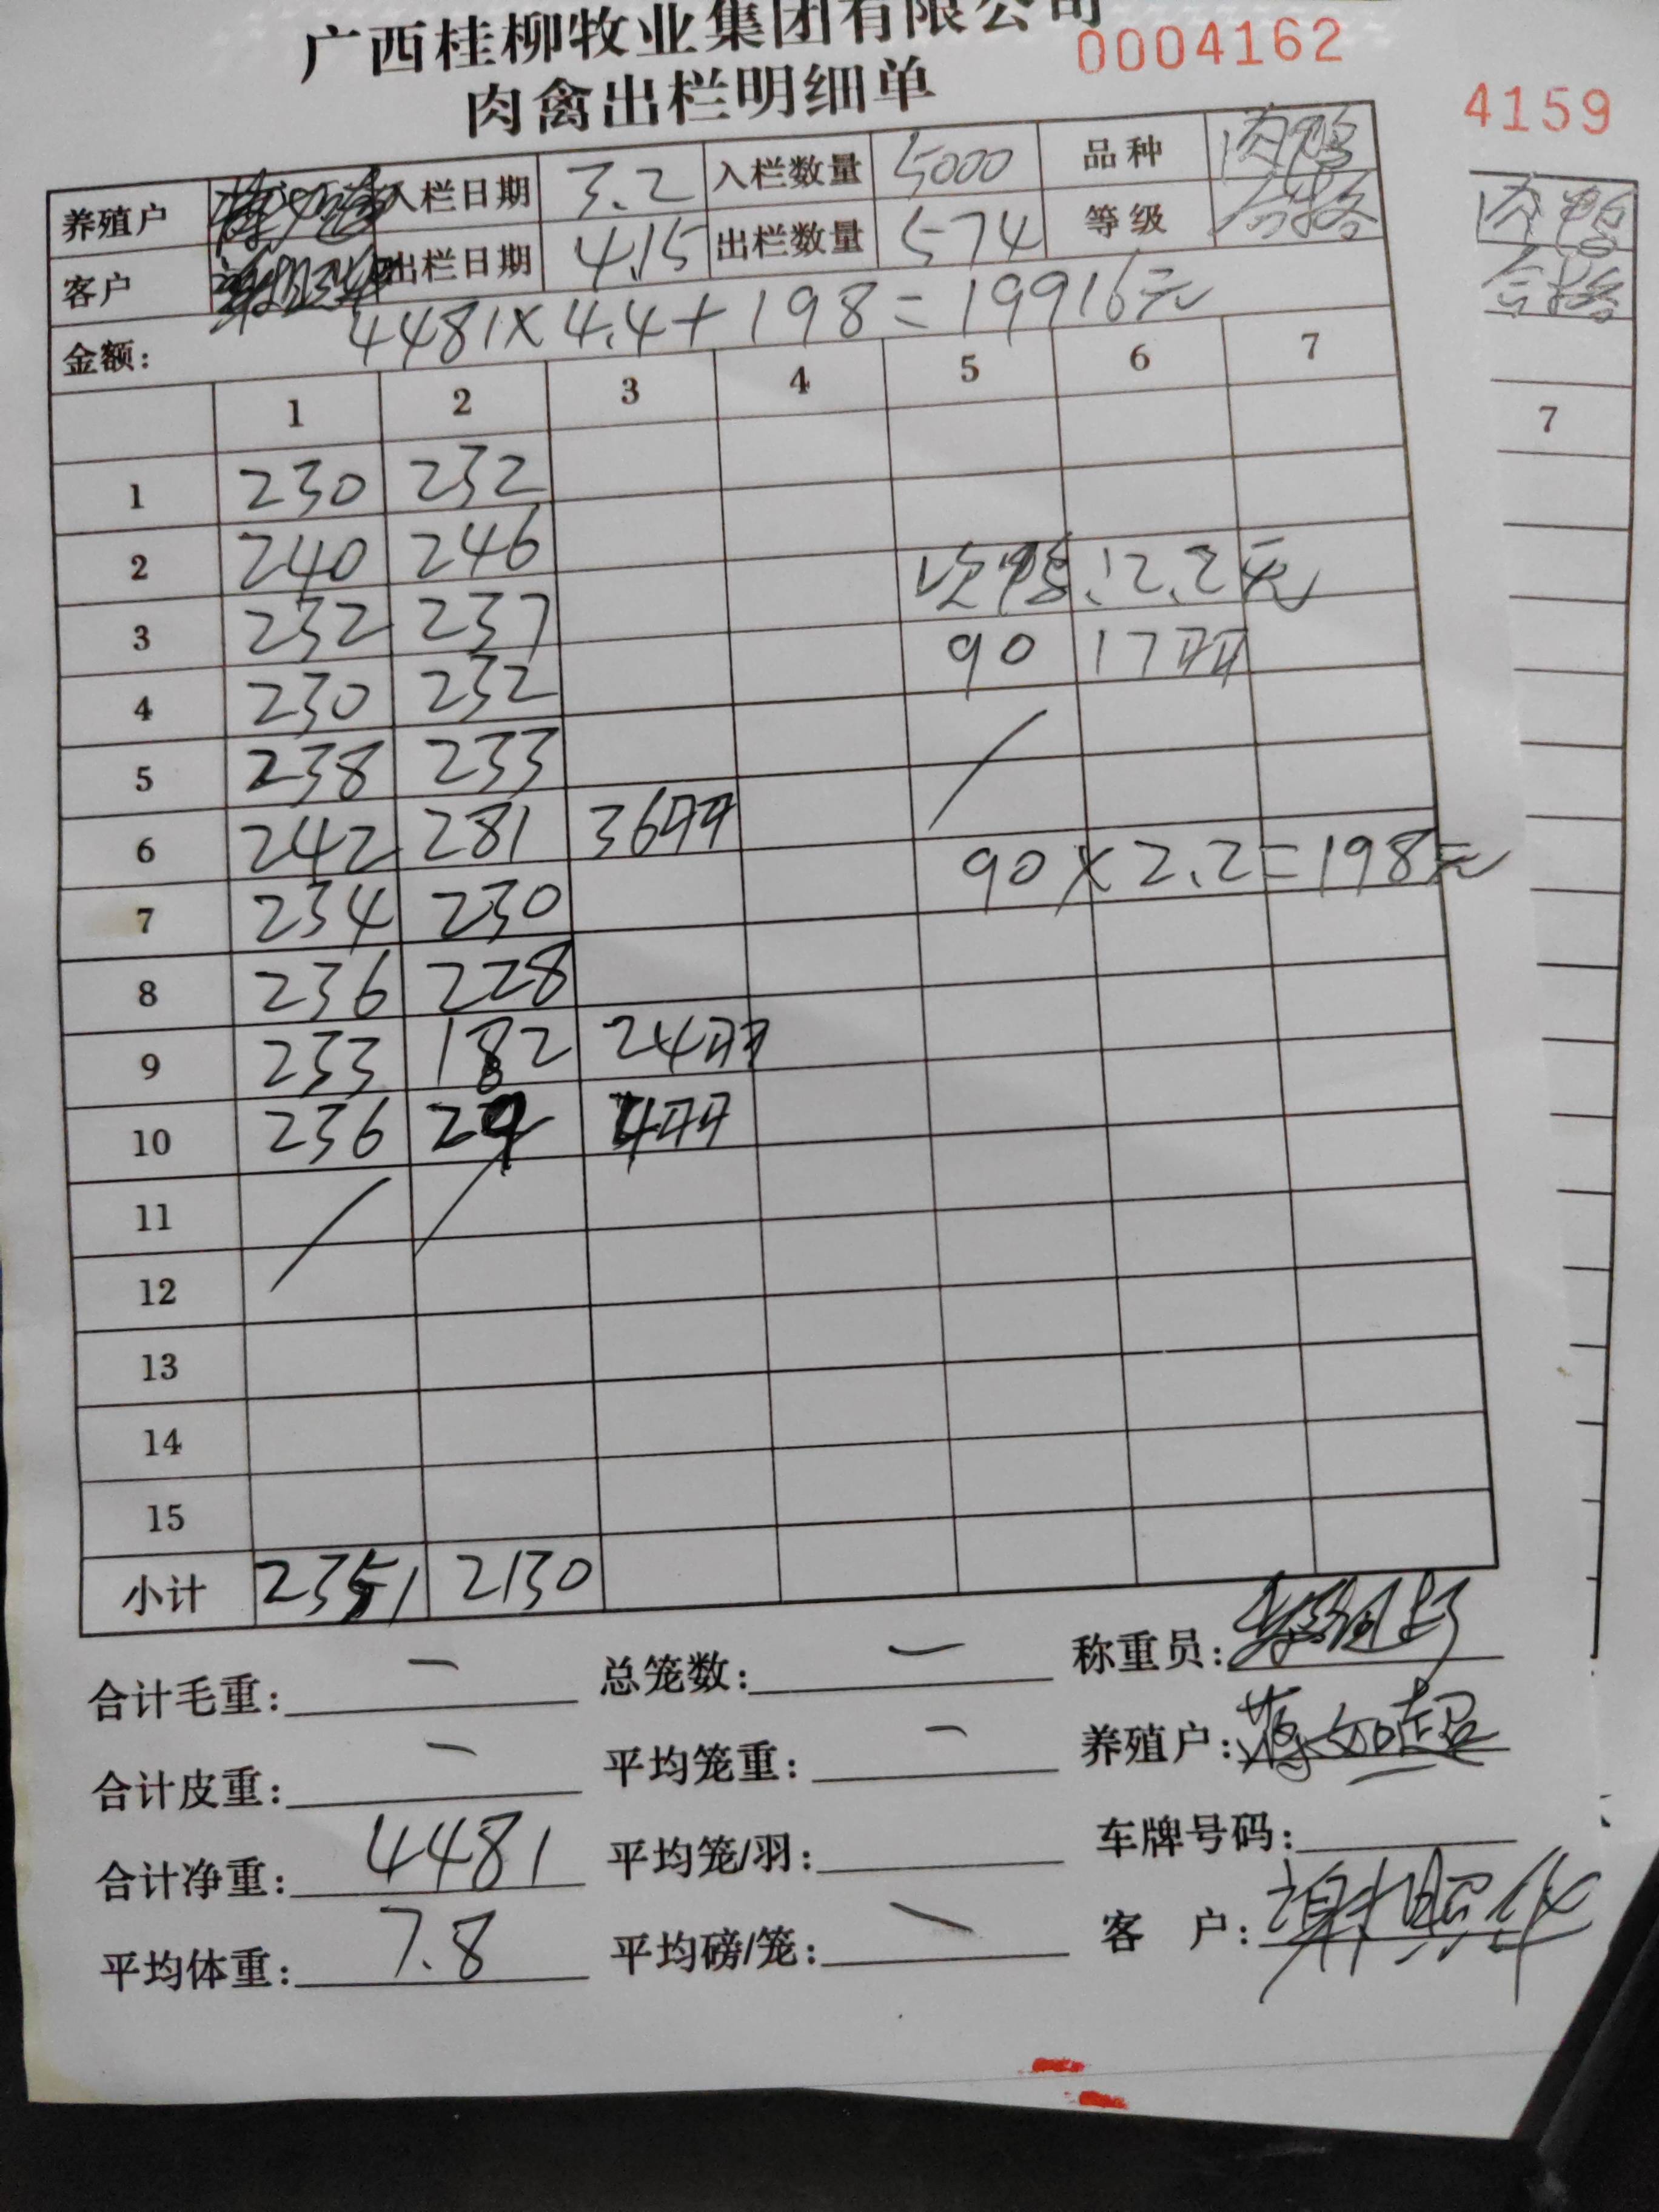 广西桂柳牧业集团有限公司
0004162
肉禽出栏明细单
4159
养殖户 入栏日期 3.2 入栏数量 5000 品种 肉鸭
肉鸭
客户 出栏日期 4.15 出栏数量 574 等级 合格
合格
金额: 4481×4.4+198=19916元
1 2 3 4 5 6 7
7
1 230 232
2 240 246 次鸭:2.2元
3 232 237 90 17只
4 230 232
5 238 233
6 242 281 36只 90×2.2=198元
7 234 230
8 236 228
9 233 182 24只
10 236 29 4只
11
12
13
14
15
小计 2351 2130
合计毛重: 一 总笼数: 一 称重员:
合计皮重: 一 平均笼重: 一 养殖户: 蒋如超
合计净重: 4481 平均笼/羽: 车牌号码:
平均体重: 7.8 平均磅/笼: 一 客 户: 谢照华